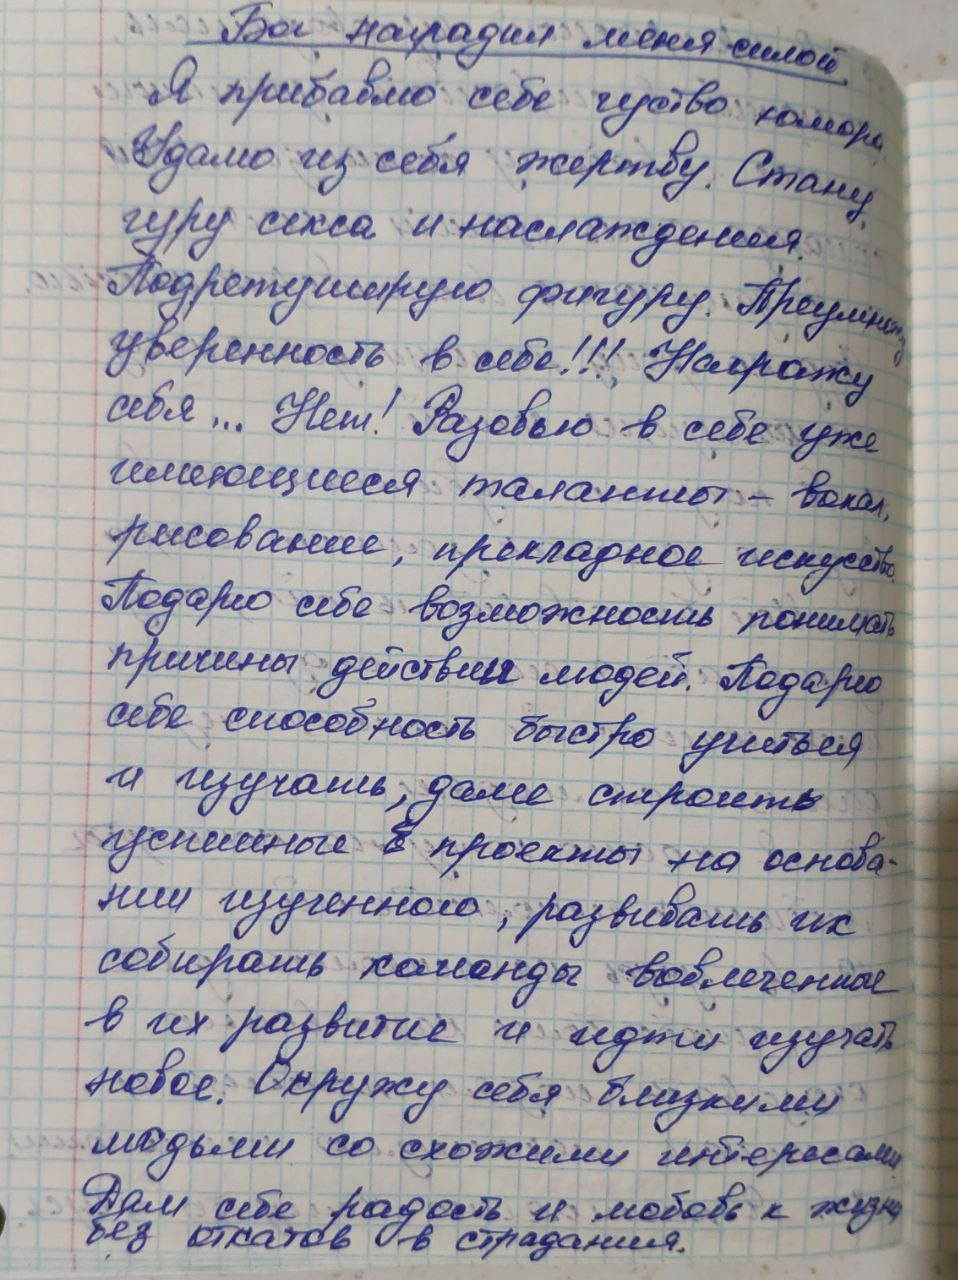 Бог наградил меня силой
Я прибавлю себе чуство юмора.
Удалю из себя жертву. Стану
гуру секса и наслаждения.
Подретуширую фигуру. Преумножу
уверенность в себе!!! Награжу
себя... Нет! Разовью в себе уже
имеющиеся таланты - вокал,
рисование, прикладное искусство.
Подарю себе возможность понимать
причины действий людей. Подарю
себе способность быстро учиться
и изучать, далее строить
успешные проекты на основа-
нии изученного, развивать их
собирать команды вовлеченные
в их развитие и идти изучать
новое. Окружу себя близкими
людьми со схожими интересами
Дам себе радость и любовь к жизни
без откатов в страдания.